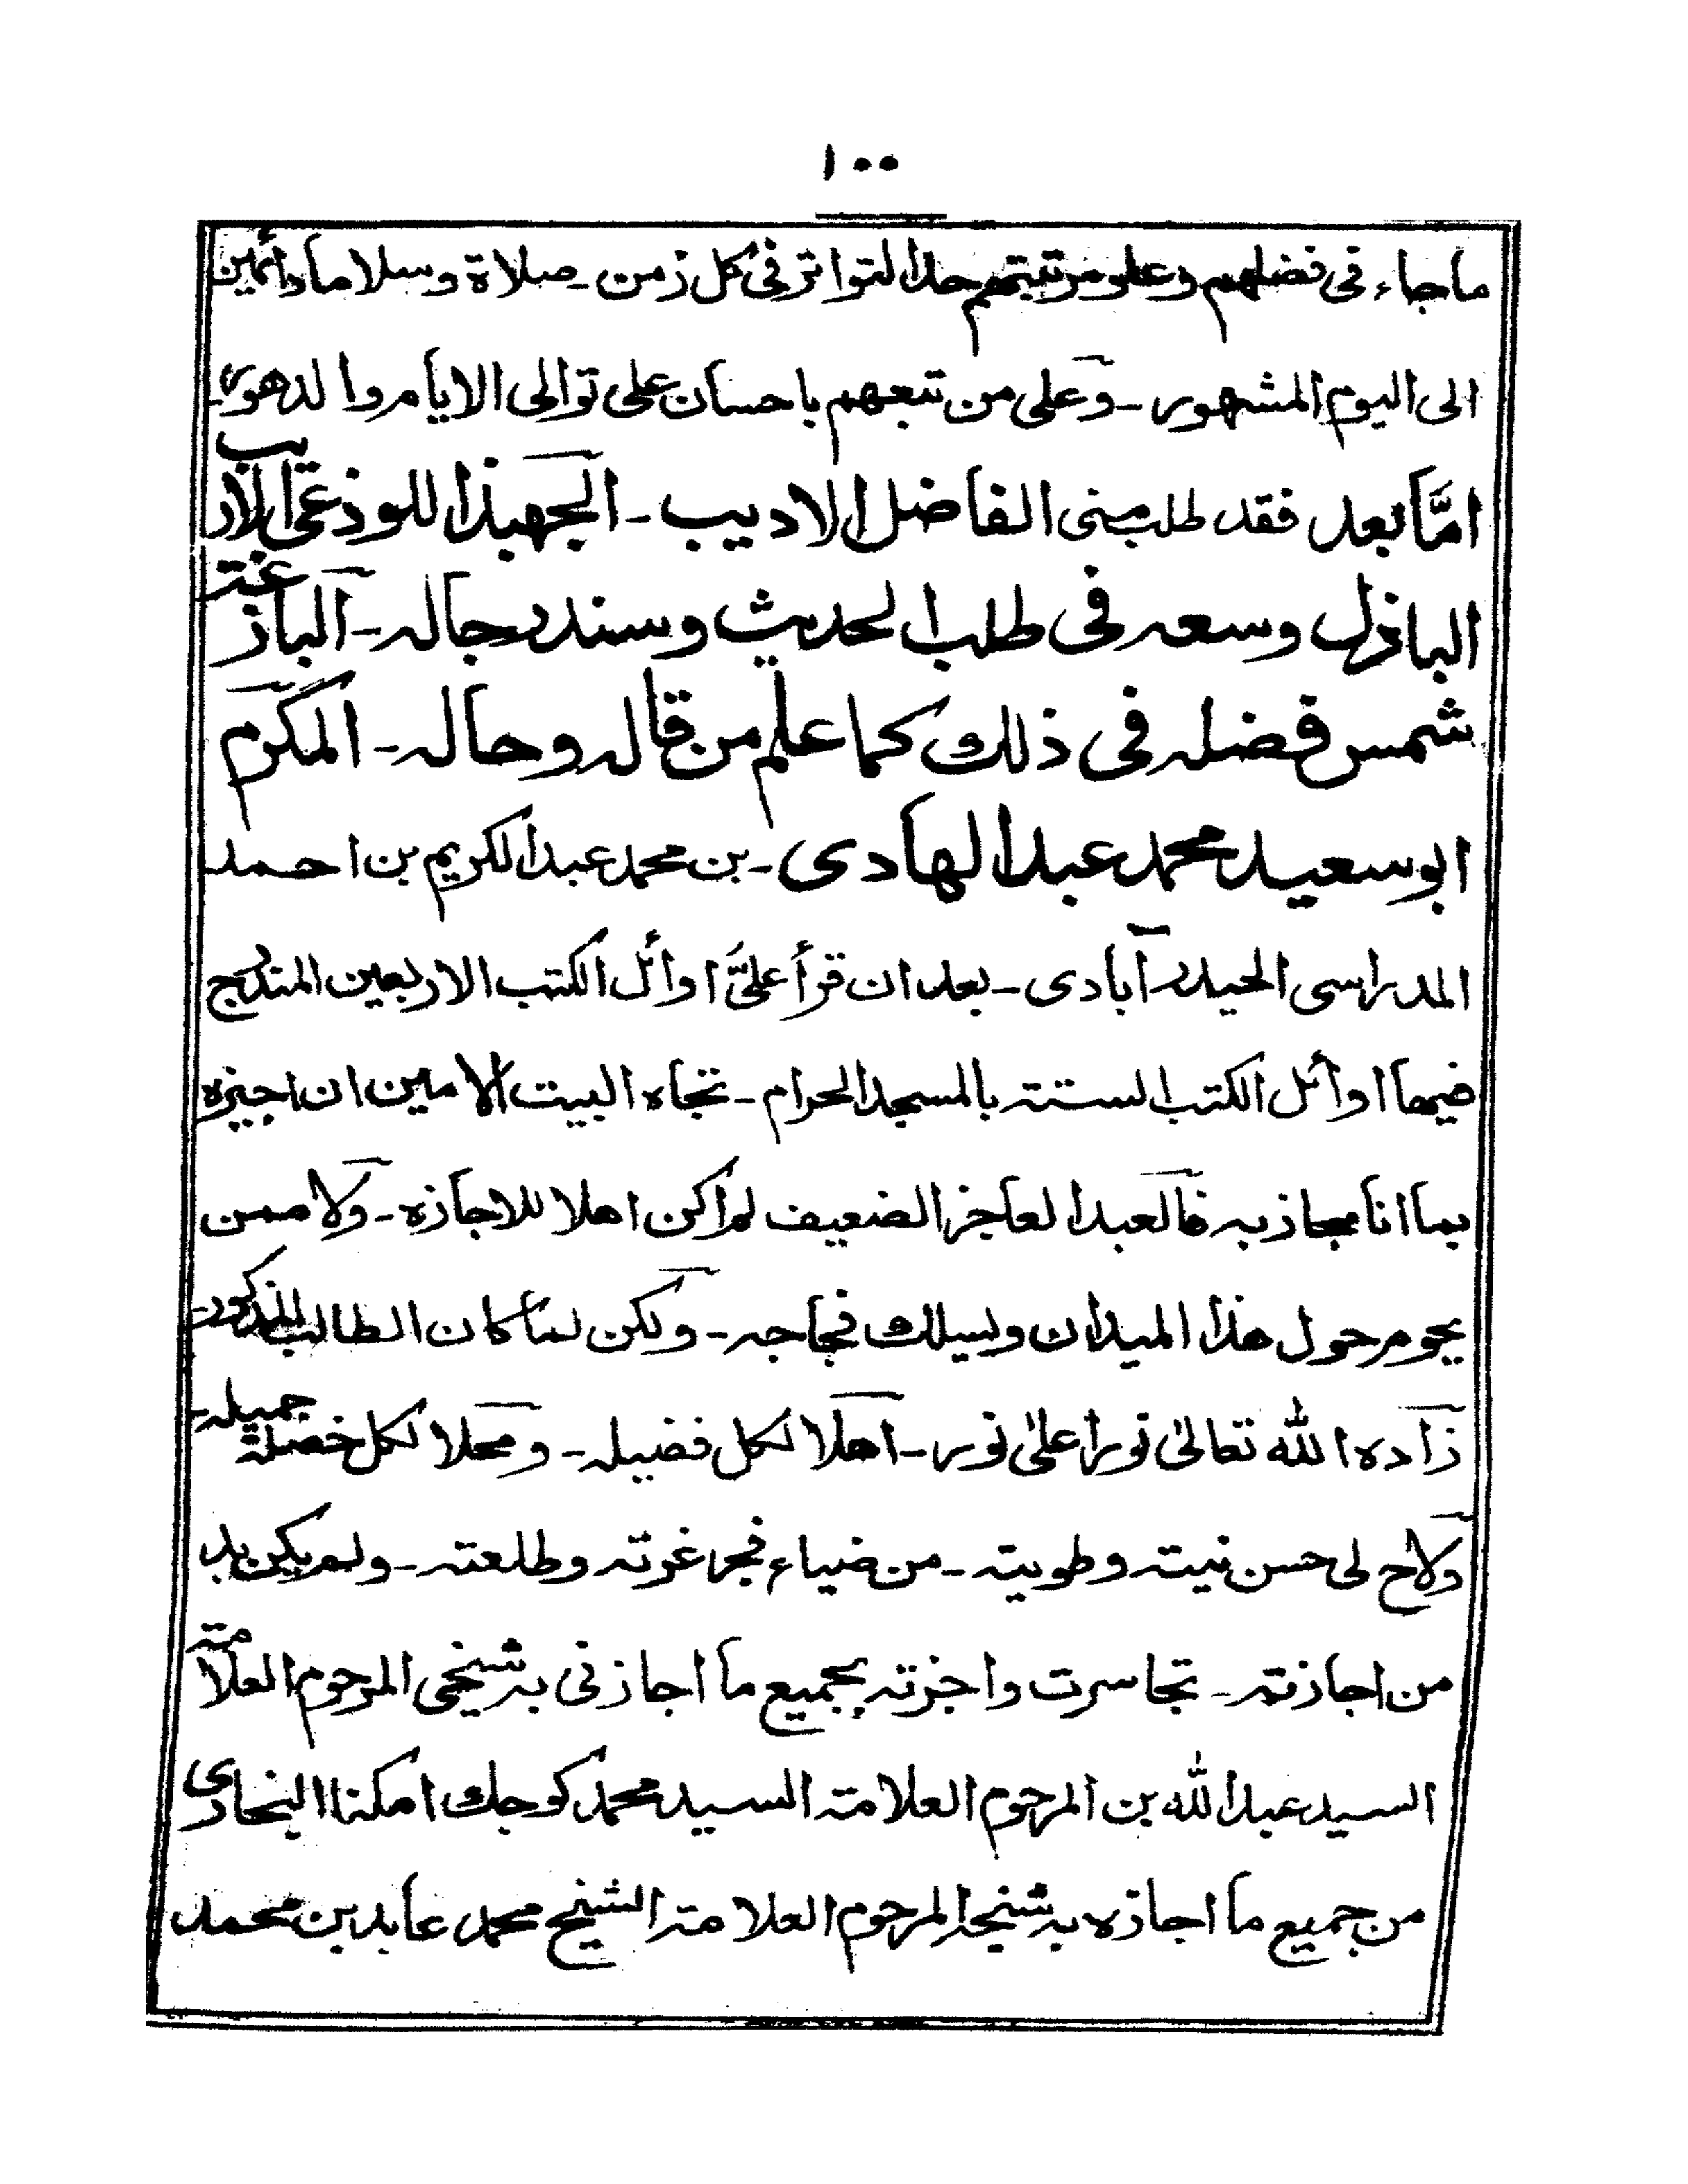 ١٠٠
ماجاء فى فضلهم وعلو مرتبتهم حد التواتر فى كل زمن ـ صلاة وسلاما دائمين
الى اليوم المشهور ـ وعلى من تبعهم باحسان على توالى الايام والدهور ـ
امّا بعد فقد طلب منى الفاضل الاديب ـ الجهبذ اللوذعى الاريب
الباذل وسعه فى طلب الحديث وسند رجاله ـ البازغة
شمس فضله فى ذلك كما علم من قاله وحاله ـ المكرم
ابو سعيد محمد عبد الهادى ـ بن محمد عبد الكريم بن احمد
المدراسى الحيدر آبادى ـ بعد ان قرأ علىَّ اوائل الكتب الاربعين المندرج
ضيمها اوائل الكتب الستة بالمسجد الحرام ـ تجاه البيت الامين ان اجيزه
بما انا مجاز به فالعبد العاجز الضعيف لم اكن اهلا للاجازه ـ ولا ممن
يحوم حول هذا الميدان ويسلك فجاجه ـ ولكن لما كان الطالب المذكور ـ
زاده الله تعالىٰ نورا علىٰ نور ـ اهلا لكل فضيله ـ ومحلا لكل خصلة جميله ـ
ولاح لى حسن نيته وطويته ـ من ضياء فجر غرته وطلعته ـ ولم يكن بد
من اجازته ـ تجاسرت واجزته بجميع ما اجازنى به شيخى المرحوم العلامة
السيد عبد الله بن المرحوم العلامة السيد محمد كوجك امكنا البخارى
من جميع ما اجازه به شيخه المرحوم العلامة الشيخ محمد عابد بن محمد